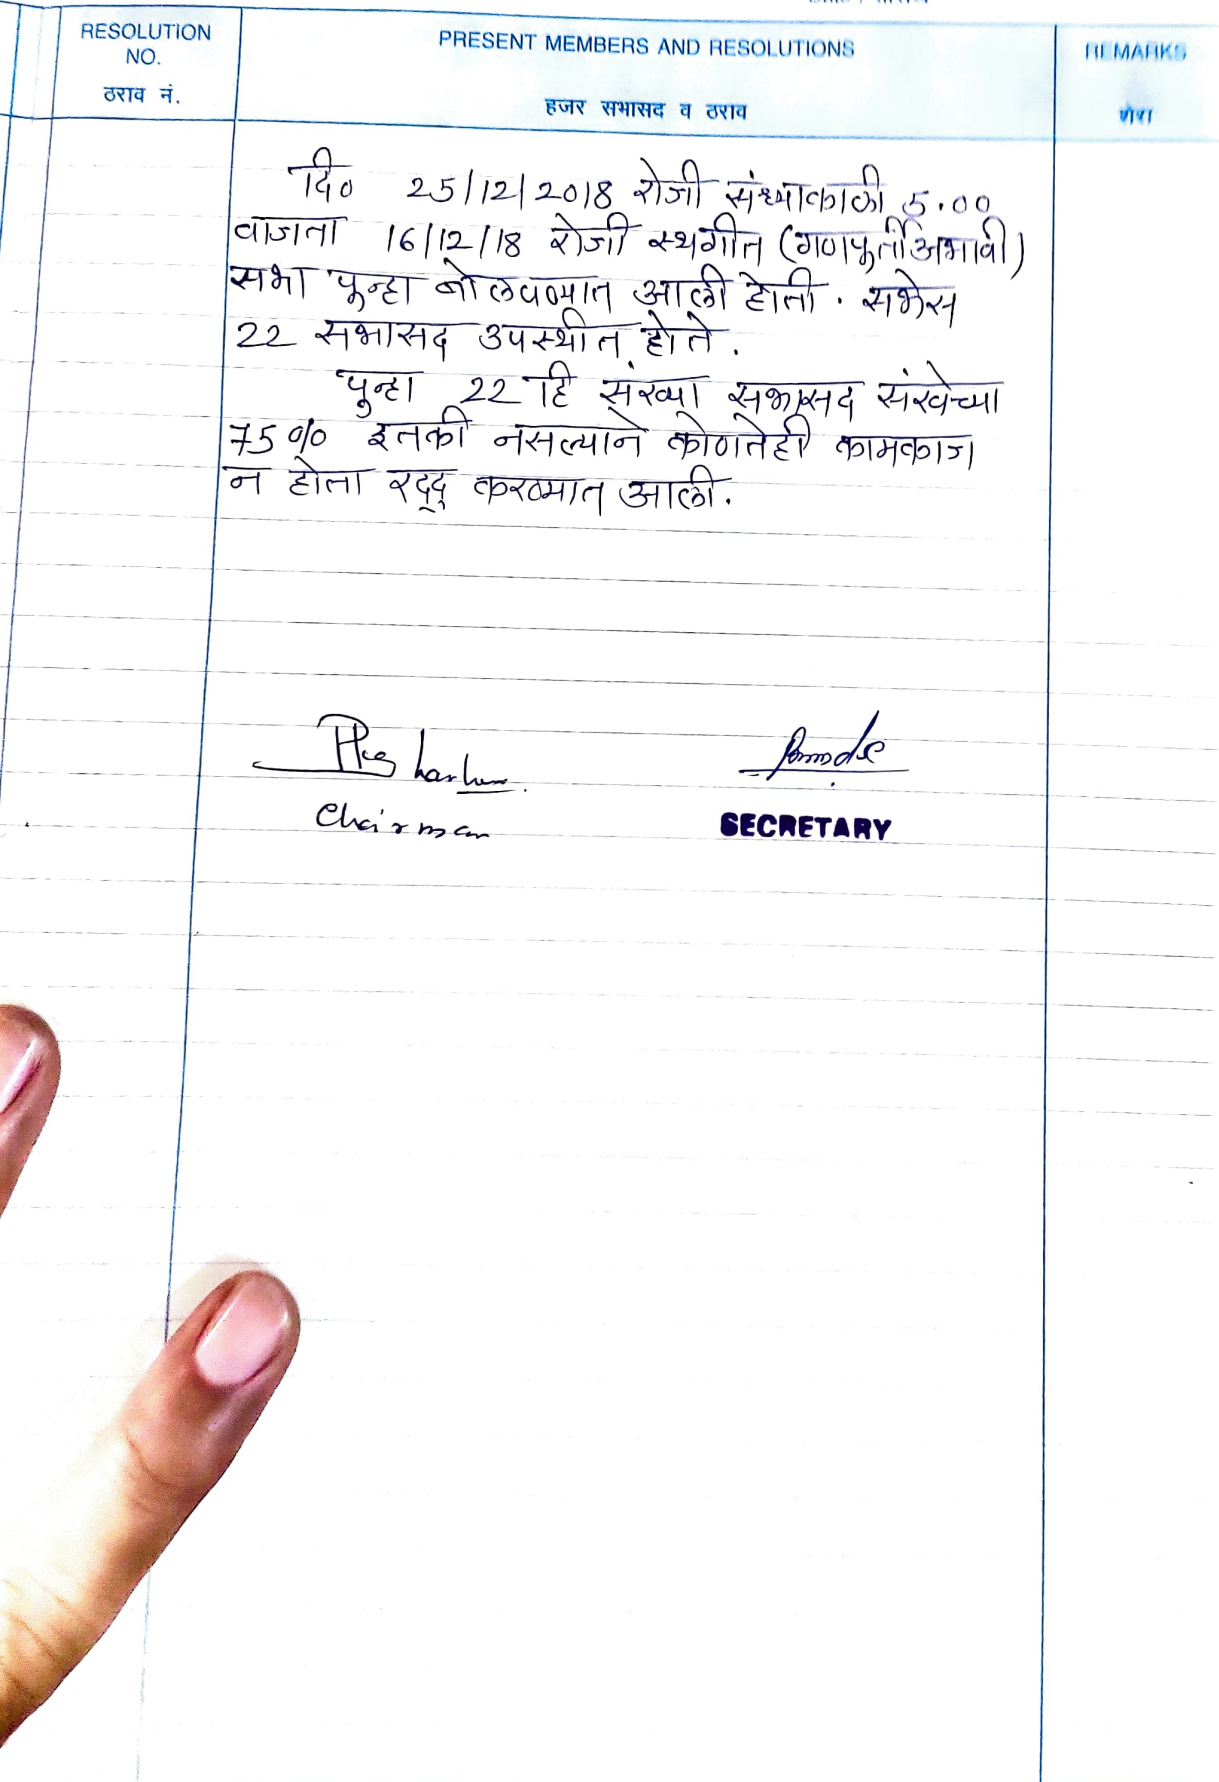 RESOLUTION
NO.
ठराव नं.
PRESENT MEMBERS AND RESOLUTIONS
हजर सभासद व ठराव
REMARKS
शेरा
दि० 25/12/2018 रोजी संध्याकाळी 5.00
वाजता 16/12/18 रोजी स्थगीत (गणपूर्तीअभावी)
सभा पून्हा बोलवण्यात आली होती. सभेस
22 सभासद उपस्थीत होते.
पुन्हा 22 हि संख्या सभासद संख्येच्या
75% इतकी नसल्याने कोणतेही कामकाज
न होता रद्द् करण्यात आली.
Chairman
SECRETARY